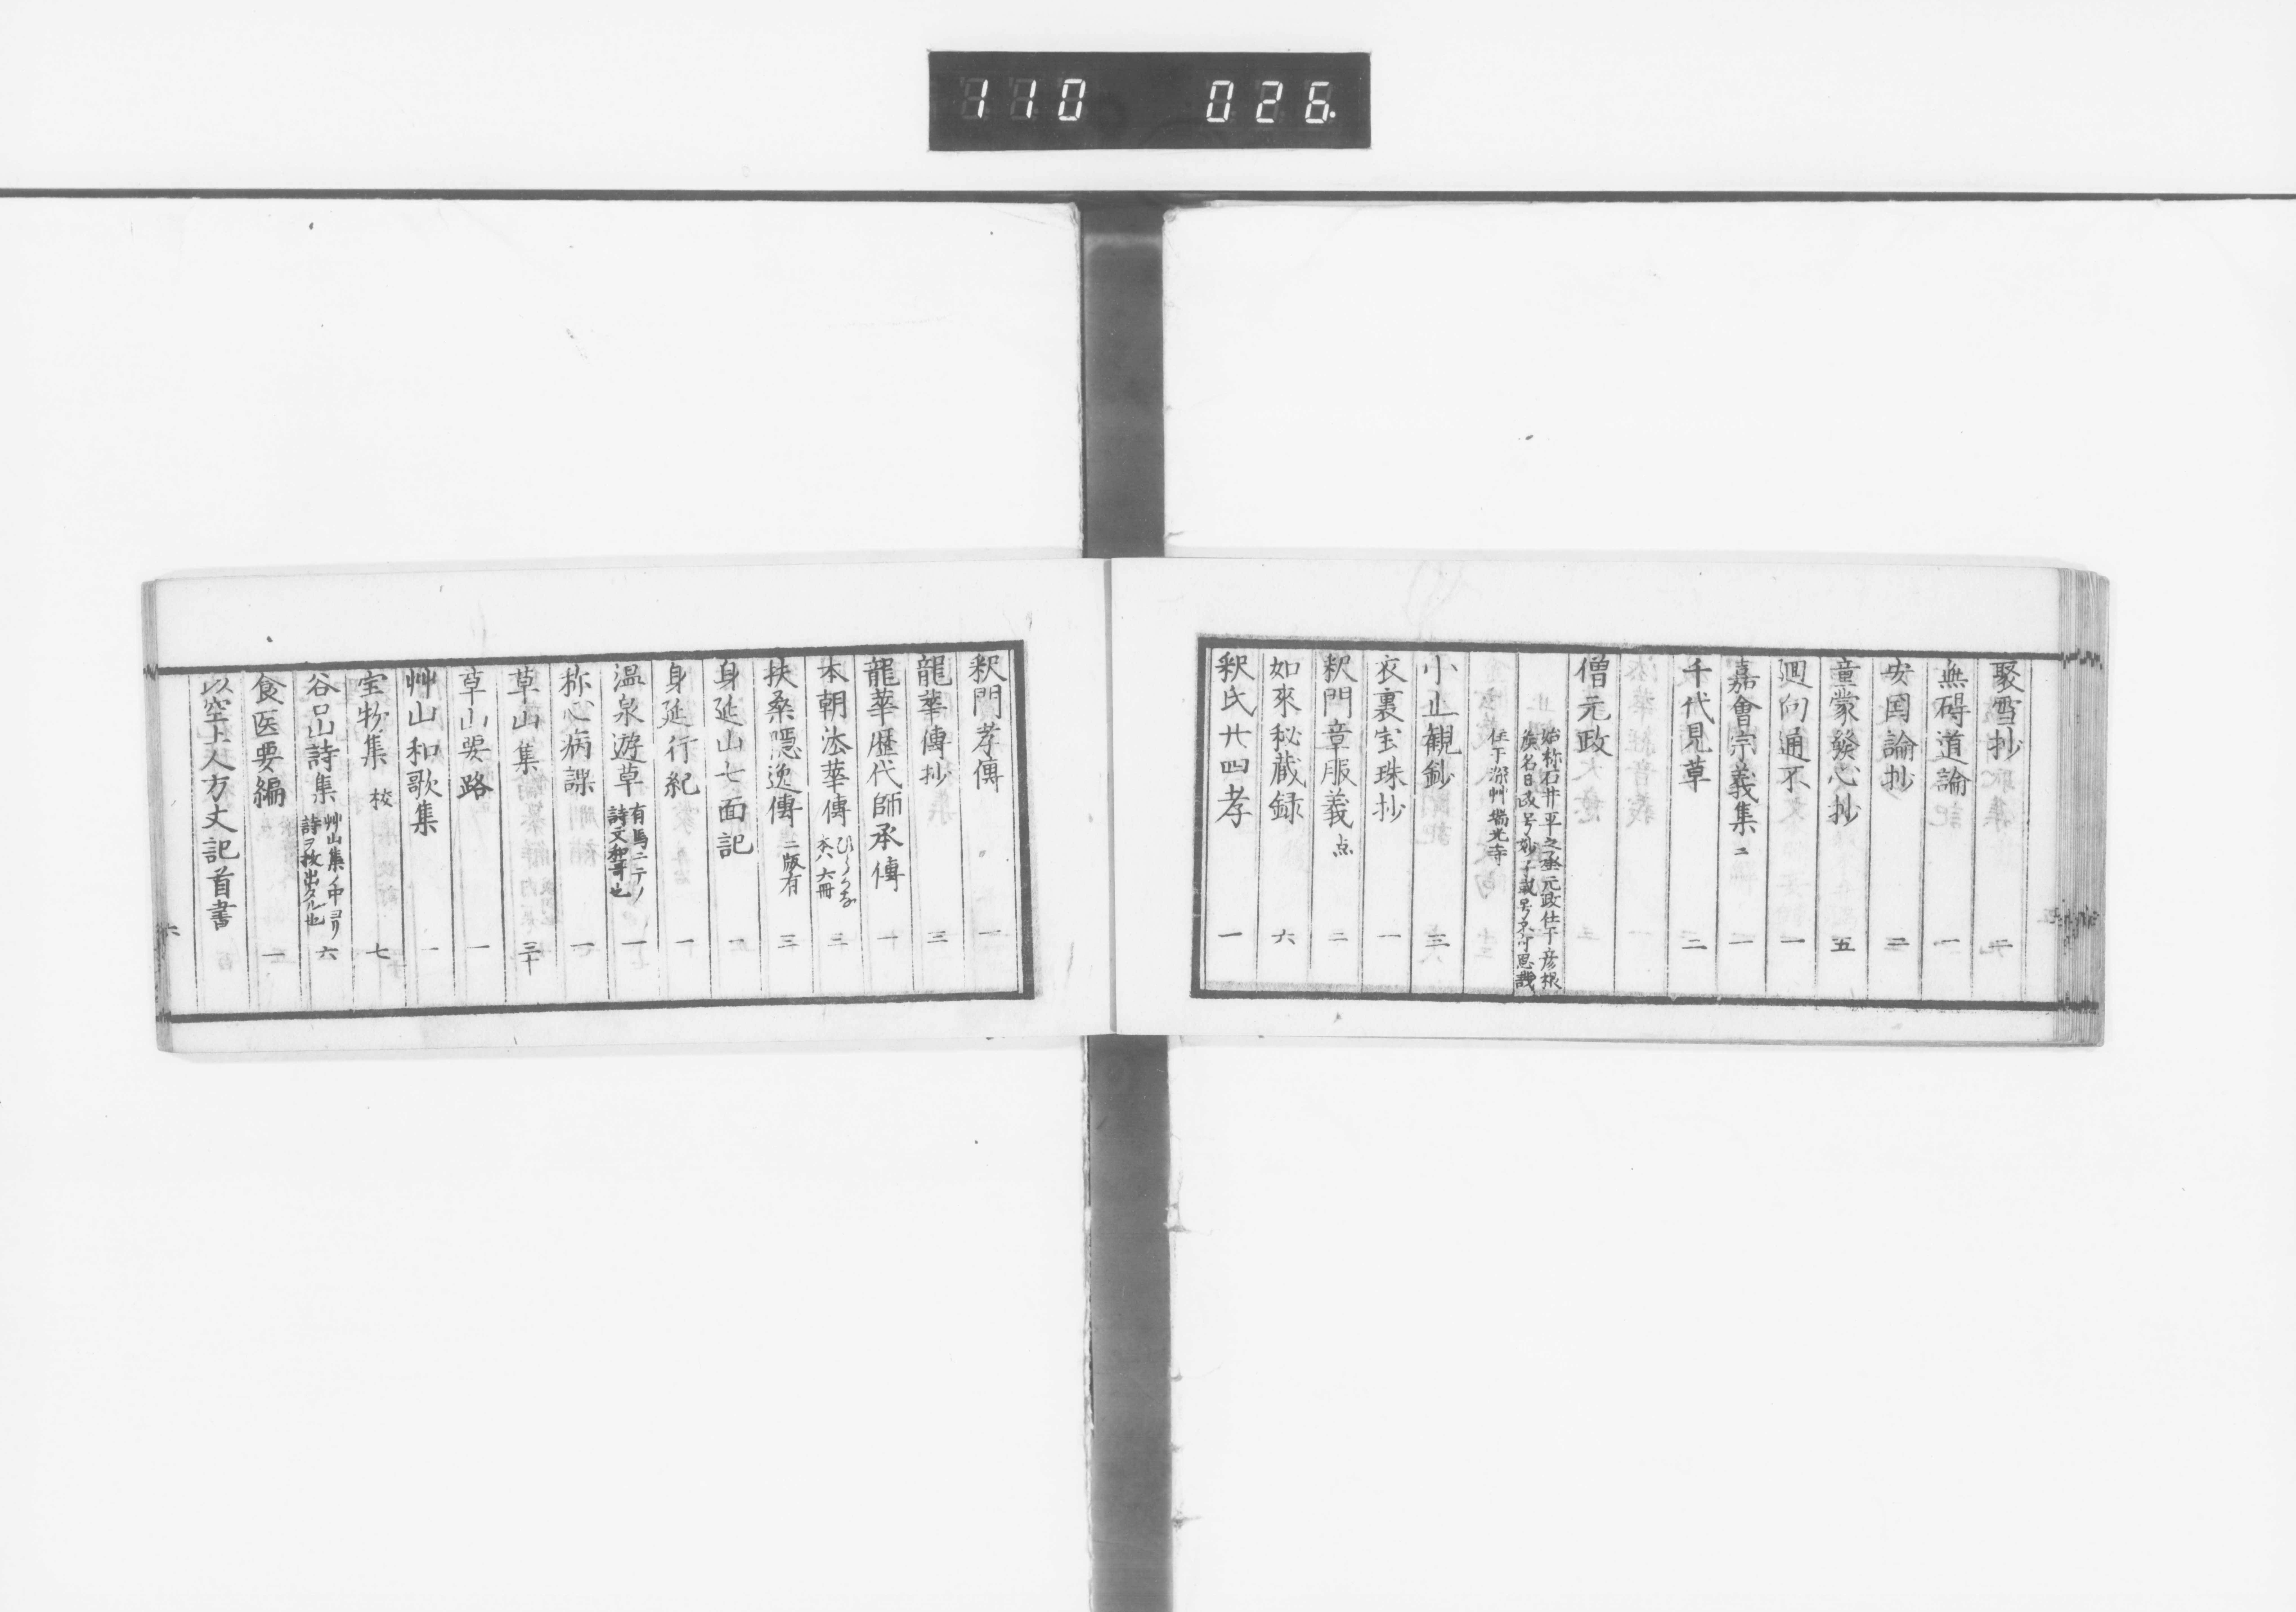 110 026
聚雪抄 二
無碍道論 一
安国論抄 二
童蒙發心抄 五
廻向通不 一
嘉會宗義集 ニ 一
千代見草 二
僧元政
始称石井平之丞元政仕于彦根
侯名日政号妙子或号不可思議
住于深艸瑞光寺
小止観鈔 三
衣裏宝珠抄 一
釈門章服義 点 二
如來秘蔵録 六
釈氏廿四孝 一
釈門孝傳 一
龍華傳抄 三
龍華歴代師承傳 一
本朝法華傳 ひらかな
本八六冊 三
扶桑隠逸傳 二版有 三
身延山七面記 一
身延行紀 一
温泉遊草 有馬ニテノ
詩文和哥也 一
称心病課 一
草山集 三十
草山要路 一
艸山和歌集 一
宝物集 校 七
谷口山詩集 艸山集ノ中ヨリ
詩ヲ抜出タル也 六
食医要編 一
以空上人方丈記首書
六